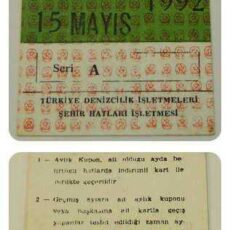 1992
15 MAYIS
Seri A
TÜRKİYE DENİZCİLİK İŞLETMELERİ
ŞEHİR HATLARI İŞLETMESİ
1 — Aylık Kupon, ait olduğu ayda bu
hatlarda indirimli kart ile
birlikte geçerlidir
2 — Geçmiş aylara ait aylık kuponu
veya başkasına ait kartla geçiş
yapanlar tesbit edildiği zaman